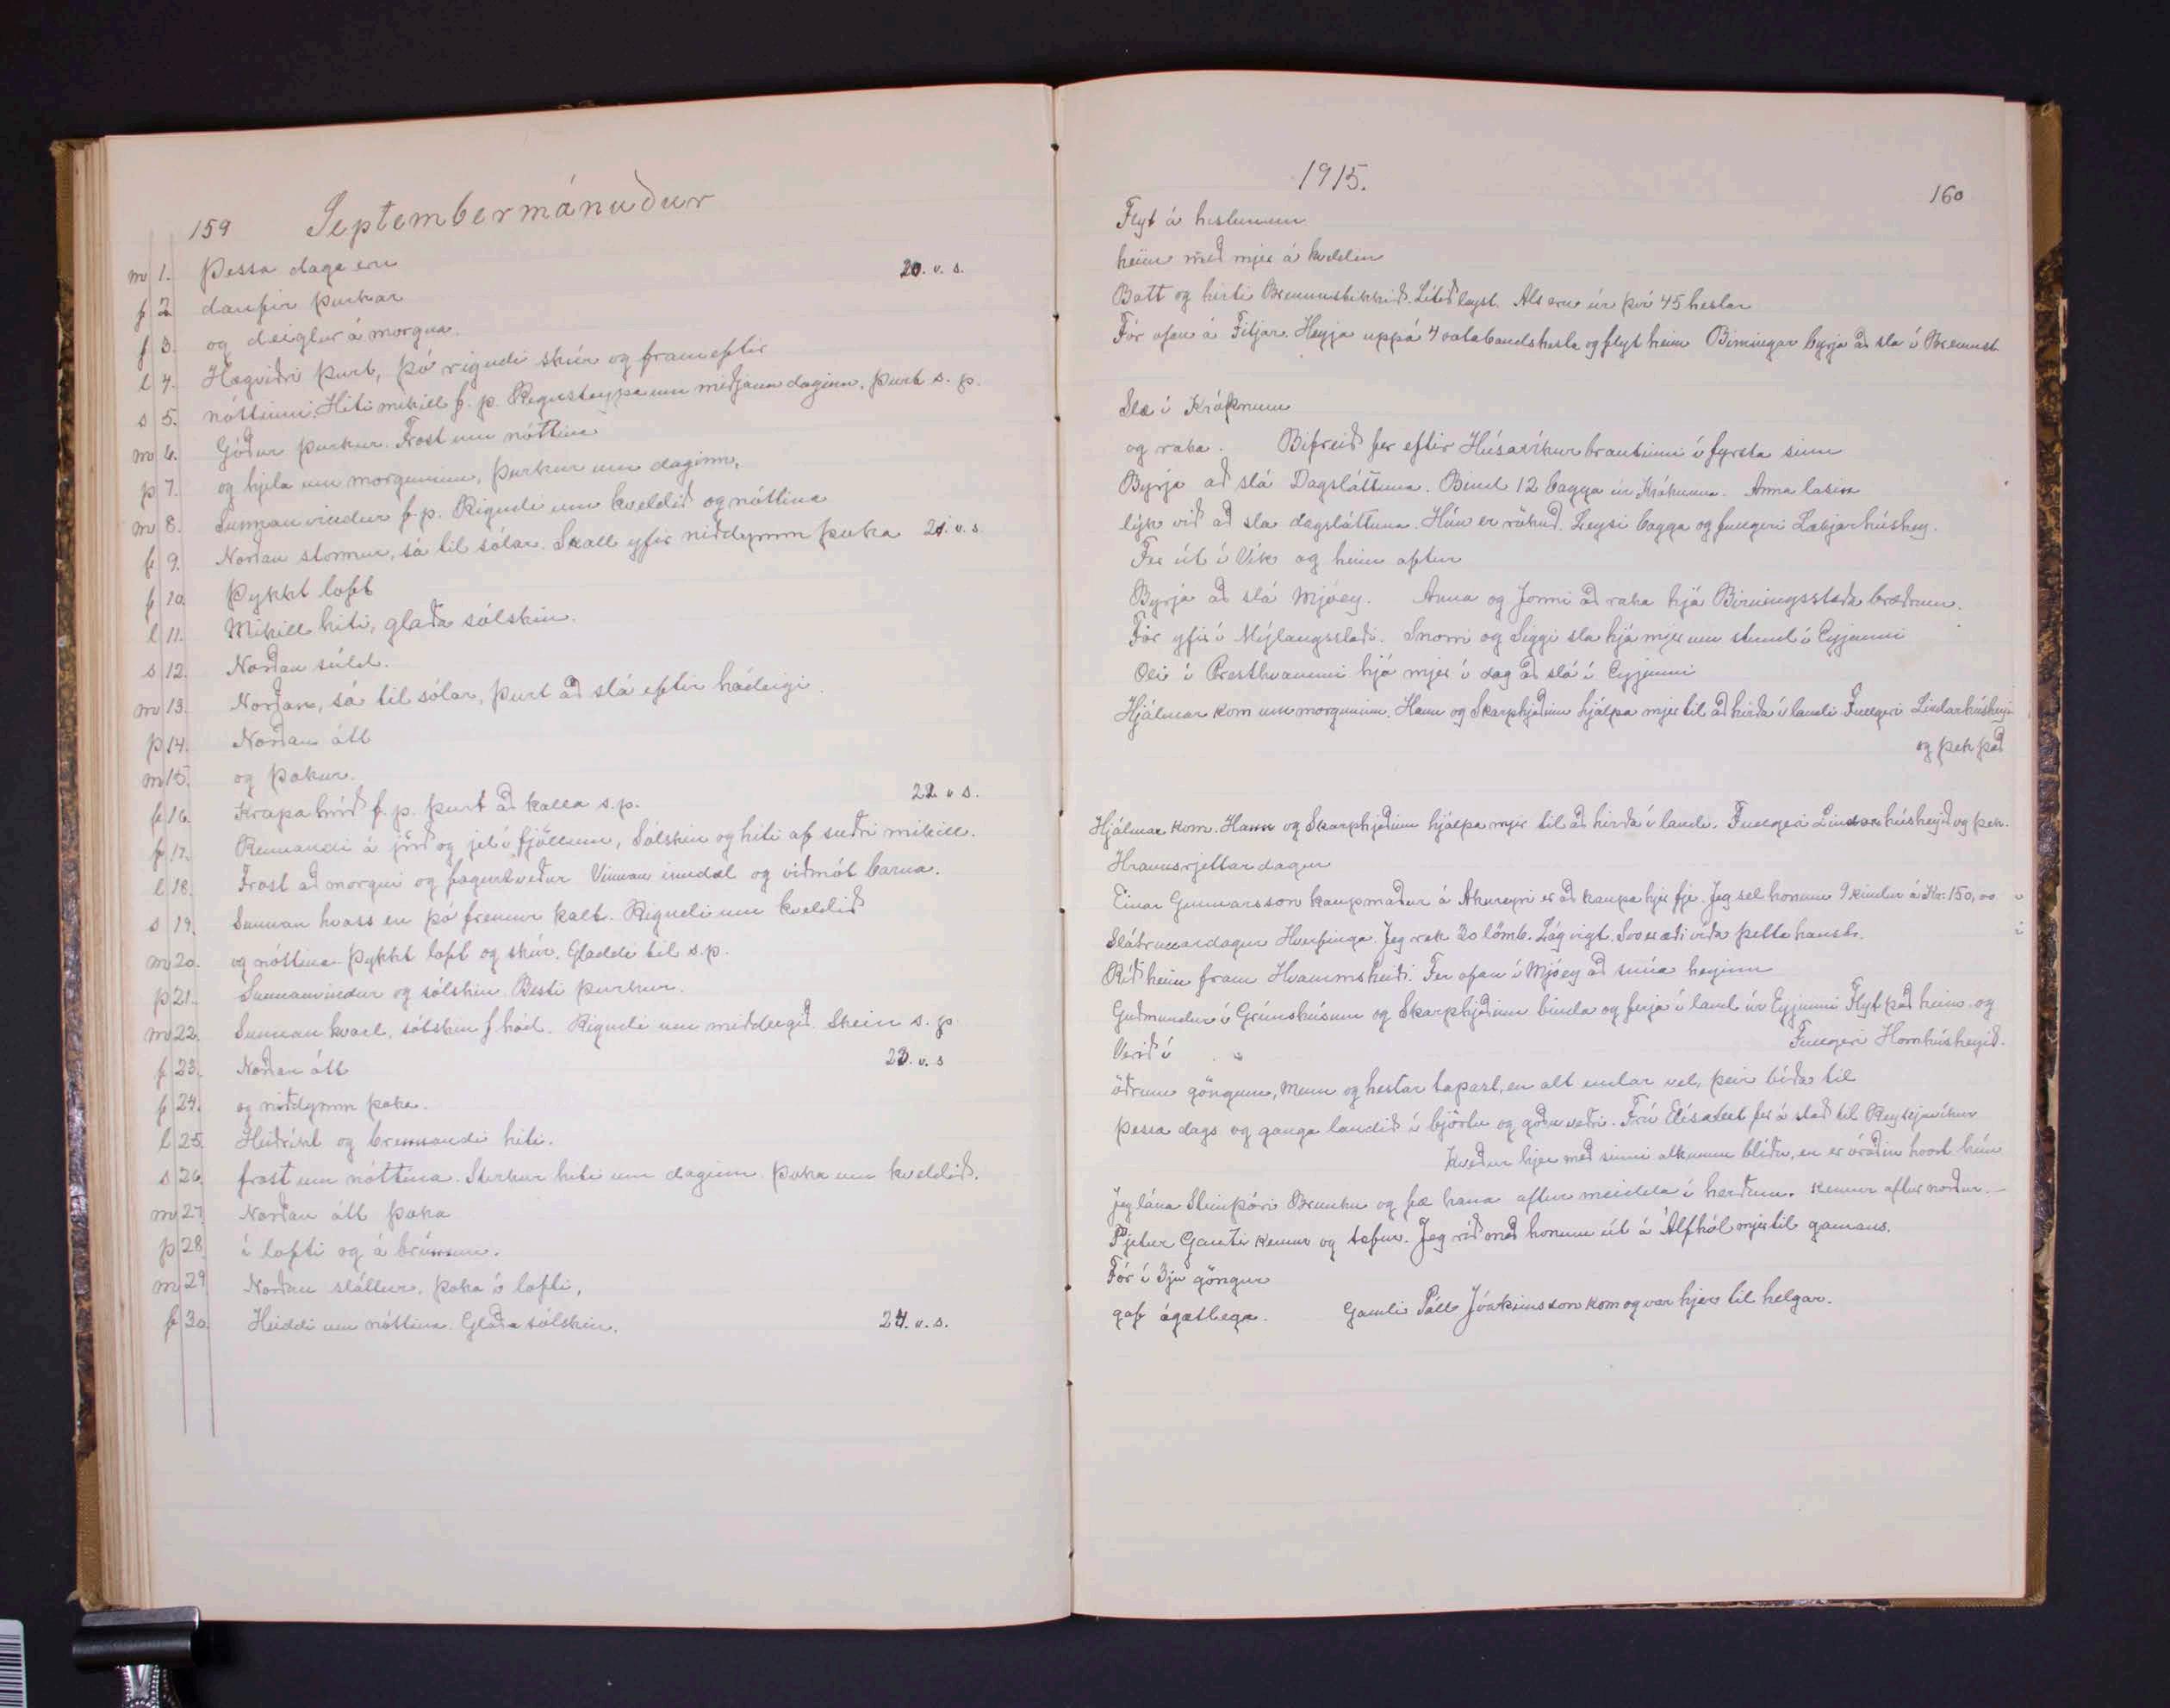 159 Septembermánuður
m 1. Þessa daga eru 20. v. s.
f 2 daufir þurkar
f 3. og deiglur á morgna.
l 4. Hægviðri þurt, þó rigndi skúr og fram eftir
s 5. nóttinni. Hiti mikill f. p. Regnsteypa um miðjann daginn. Þurt s. p.
m 6. Góður þurkur. Frost um nóttina
þ 7. og hjela um morguninn, þurkur um daginn.
m 8. Sunnanvindur f. p. Rigndi um kveldið og nóttina
f 9. Norðan stormur, sá til sólar. Skall yfir niðdymm þoka 21. v. s.
f 10. Þykkt loft
l 11. Mikill hiti, glaða sólskin.
s 12. Norðan súld.
m 13. Norðan, sá til sólar, þurt að slá eftir hádeigi.
þ 14. Norðan átt
m 15. og þokur.
f 16. Krapahríð f. p. þurt að kalla s. p. 22 v s.
f 17. Rennandi á jörð og jel í fjöllum, Sólskin og hiti af suðri mikill.
l 18. Frost að morgni og fagurt veður Vinnan inndæl og viðmót barna.
s 19. Sunnan hvass en þó fremur kalt. Rigndi um kveldið
m 20. og nóttina. Þykkt loft og skúr. Gladdi til s. p.
þ 21. Sunnanvindur og sólskin. Besti þurkur.
m 22. Sunnan hvasl. sólskin f hád. Rigndi um middegið Skein s. p.
f 23. Norðan átt 23. v. s
f 24. og niðdymm þoka.
l 25. Heiðríkt og brennandi hiti.
s 26. frost um nóttina. Sterkur hiti um daginn þoka um kveldið.
m 27. Norðan átt þoka
þ 28. í lofti og á brúnum.
m 29. Norðan sláttur, þoka á lofti,
f 30. Heiddi um nóttina. Glaða sólskin. 24. v. s.
1915. 160
Flyt á hestunum
heim með mjer á kveldin
Batt og hirti Brennustikkið. Lítið leyst. Als eru úr því 45 hestar
Fór ofan á Fitjar. Heyja uppá 4 votabandshesta og flyt heim Birningar byrja að sla í Brennust.
Slæ í Króknum
og raka. Bifreið fer eftir Húsavíkurbrautinni í fyrsta sinn
Byrja að slá Dagsláttuna. Bind 12 bagga úr Króknum. Anna lasin
lýk við að sla dagsláttuna. Hún er rökuð. Leysi bagga og fullgeri Lækjarhúshey.
Fer út í Vík og heim aftur
Byrja að slá Mjóey. Anna og Jonni að raka hjá Birningsstaða bræðrum.
Fór yfir í Mýlaugsstaði. Snorri og Siggi sla hjá mjer um stund í Eyjunni
Oli í Presthvammi hjá mjer í dag að slá í Eyjunni
Hjálmar kom um morguninn. Hann og Skarphjeðinn hjálpa mjer til að hirða í landi Fullgeri Lindarhúsheyi
og þek það
Hjálmar kom. Hann og Skarphjeðinn hjálpa mjer til að hirða í landi. Fullgeri Lindarhúsheyið og þek.
Hraunsrjettar dagur
Einar Gunnarsson kaupmaður á Akureyri er að kaupa hjer fje. Jeg sel honum 9 kindur á Kr. 150,00
Slátrunardagur Hverfinga. Jeg rek 30 lömb. Lág vigt. Svo er æði víða þetta haust.
Ríð heim fram Hvammsheiði. Fer ofan í Mjóey að snúa heyinu
Guðmundur í Grímshúsum og Skarphjeðinn binda og ferja í land úr Eyjunni Flyt það heim og
Fullgeri Hornhúsheyið.
Verið í „
öðrum göngum, Menn og hestar tapast, en alt endar vel, þeir bíða til
þessa dags og ganga landið í björtu og góðu veðri. Frú Elísabet fer á stað til Reykjavíkur
Kveður hjer með sinni alkunnu blíðu, en er óráðin hvort hún
Jeg lána Steinþóri Brunku og fæ hana aftur meidda í herðum. Kemur aftur norður.
Pjetur Gauti kemur og tefur. Jeg ríð með honum út á Álfhól mjer til gamans.
Fór í 3ju göngur
gaf ágætlega. Gamli Páll Jóakimsson kom og var hjer til helgar.